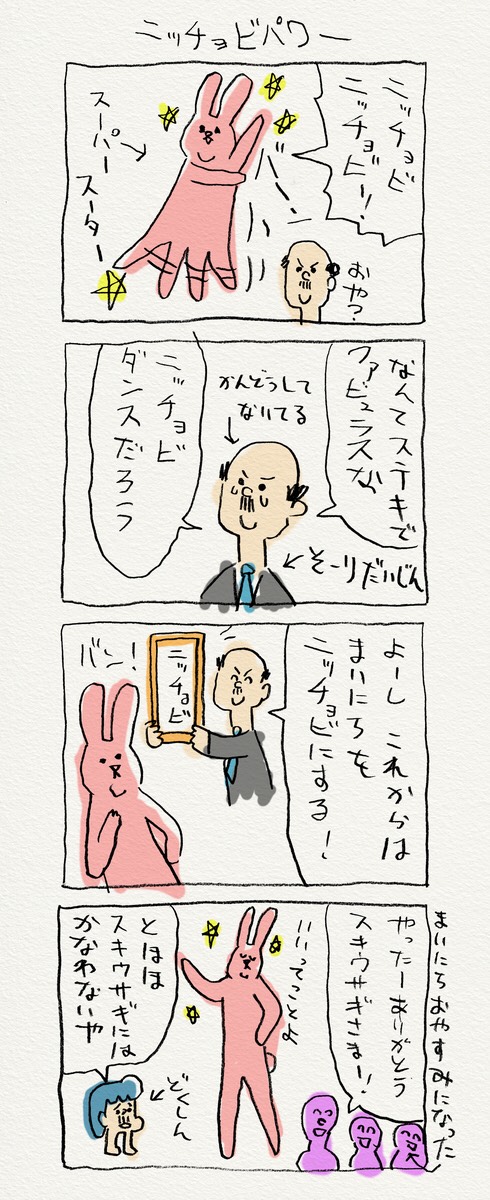 ニッチョビパワー
ニッチョビ
ニッチョビー!
スーパー
スーター
バーン!
おや?
なんてステキで
ファビュラスな
かんどうして
ないてる
ニッチョビ
ダンスだろう
そーりだいじん
よーし これからは
まいにちを
ニッチョビにする!
ニッチョビ
バン!
まいにちおやすみになった
やったーありがとう
スキウサギさまー!
いいってことよ
とほほ
スキウサギには
かなわないや
どくしん